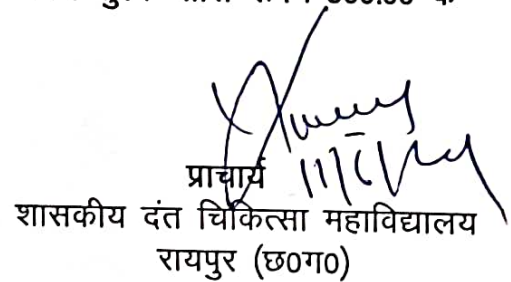 11/6/24
प्राचार्य
शासकीय दंत चिकित्सा महाविद्यालय
रायपुर (छ0ग0)